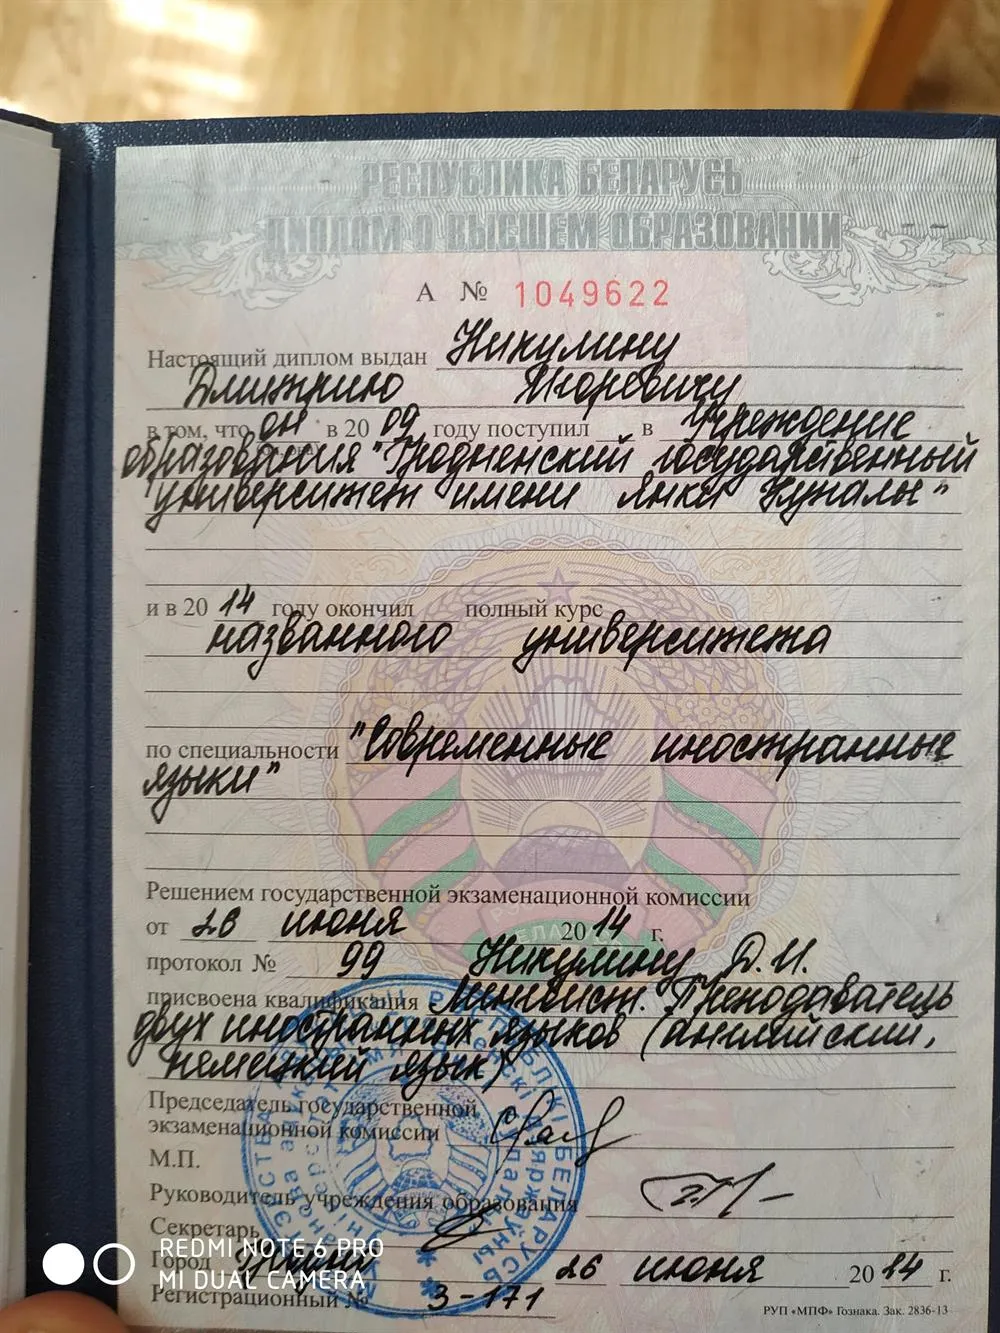 РЕСПУБЛИКА БЕЛАРУСЬ
ДИПЛОМ О ВЫСШЕМ ОБРАЗОВАНИИ
А № 1049622
Настоящий диплом выдан Никулину
Дмитрию Игоревичу
в том, что он в 20 09 году поступил в Учреждение
образования "Гродненский государственный
университет имени Янки Купалы"
и в 20 14 году окончил полный курс
названного университета
по специальности "Современные иностранные
языки"
Решением государственной экзаменационной комиссии
от 26 июня 20 14 г.
протокол № 99 Никулину Д.И.
присвоена квалификация Лингвист. Преподаватель
двух иностранных языков (английский,
немецкий язык)
Председатель государственной
экзаменационной комиссии
М.П.
Руководитель учреждения образования
Секретарь
Город Гродно 26 июня 20 14 г.
Регистрационный № 3-171
РУП «МПФ» Гознака. Зак. 2836-13
REDMI NOTE 6 PRO
MI DUAL CAMERA